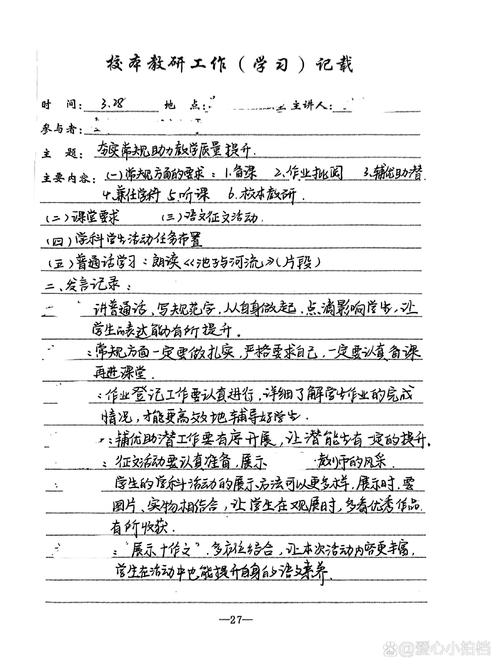 校本教研工作（学习）记载
时 间： 3.28 地 点： 主讲人：
参与者：
主 题： 夯实常规助力教学质量提升.
主要内容：(一)常规方面的要求：1.备课 2.作业批阅 3.辅优助潜
4.兼任学科 5.听课 6.校本教研.
(二)课堂要求 (三)语文征文活动.
(四)学科学生活动任务布置
(五)普通话学习：朗读《池子与河流》(片段)
二、发言记录：
讲普通话，写规范字，从自身做起，点滴影响学生，让
学生的表达能力有所提升.
：常规方面一定要做扎实，严格要求自己，一定要认真备课
再进课堂.
：作业登记工作要认真进行，详细了解学生作业的完成
情况，才能更高效地辅导好学生.
：辅优助潜工作要有序开展，让潜能生有一定的提升.
：征文活动要认真准备，展示 教师的风采.
学生的学科活动的展示方法可以更多样，展示时，要
图片、实物相结合，让学生在观展时，多看优秀作品.
有所收获.
："展示十作文"，多方位结合，让本次活动内容更丰富，
学生在活动中也能提升自身的语文素养.
—27—
爱心小拍档